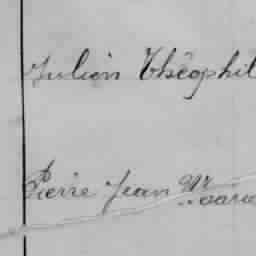 Julien Théophil
Pierre Jean M